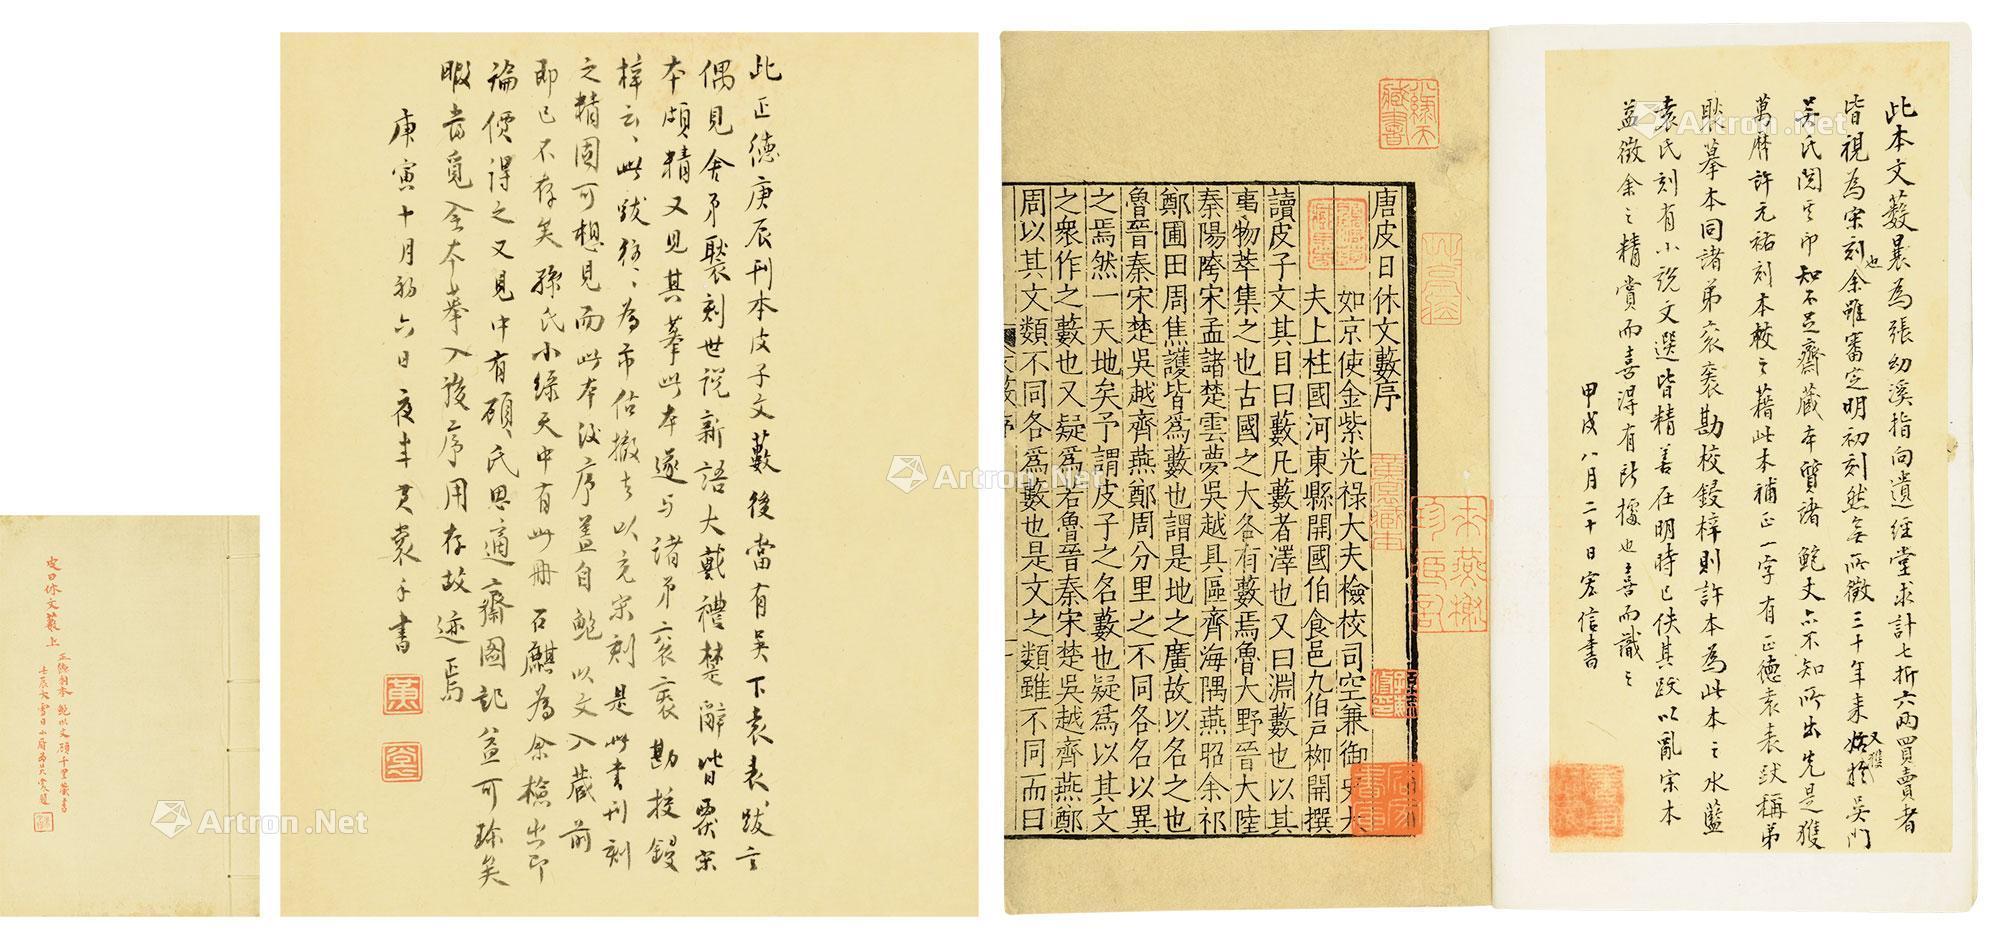 皮日休文藪 上
正德刊本 鮑以文顧千里藏書
此正德庚辰刊本皮子文藪後當有吳下袁表跋言
偶見舍弟褧刻世說新語大戴禮楚辭皆覆宋
本頗精又見其摹此本遂与諸弟袞裘勘校鋟
梓云云此跋往往為市估撤去以充宋刻是此書刊刻
之精固可想見而此本後序蓋自鮑以文入藏前
即已不存矣孫氏小綠天中有此冊石麒為余檢出即
論價得之又見中有顧氏思適齋圖記益可珍矣
暇當覓全本摹入後序用存故迹焉
庚寅十月初六日夜半黃裳手書
黃
裳
唐皮日休文藪序
如京使金紫光祿大夫檢校司空兼御史大
夫上柱國河東縣開國伯食邑九伯戶柳開撰
讀皮子文其目曰藪凡藪者澤也又曰淵藪也以其
夷物萃集之也古國之大各有藪焉魯大野晉大陸
秦陽陓宋孟諸楚雲夢吳越具區齊海隅燕昭余祁
鄭圃田周焦護皆爲藪也謂是地之廣故以名之也
魯晉秦宋楚吳越齊燕鄭周分里之不同各名以異
之焉然一天地矣予謂皮子之名藪也疑爲以其文
之衆作之藪也又疑爲若魯晉秦宋楚吳越齊燕鄭
周以其文類不同各爲藪也是文之類雖不同而曰
此本文藪曩為張幼溪指向遺經堂求計七折六兩買賣者
皆視為宋刻也余雖審定明初刻然無所徵三十年来又獲於吳門
吳氏閱其印知不足齋藏本質諸鮑丈亦不知所出先是獲
萬曆許元祐刻本較之藉此本補正一字有正德袁表跋稱弟
褧摹本同諸弟袞裘勘校鋟梓則許本為此本之水藍
袁氏刻有小說文選皆精善在明時已佚其跋以亂宋本
益徵余之精賞而喜得有所據也喜而識之
甲戌八月二十日 信書
Artron.Net
Artron.Net
Artron.Net